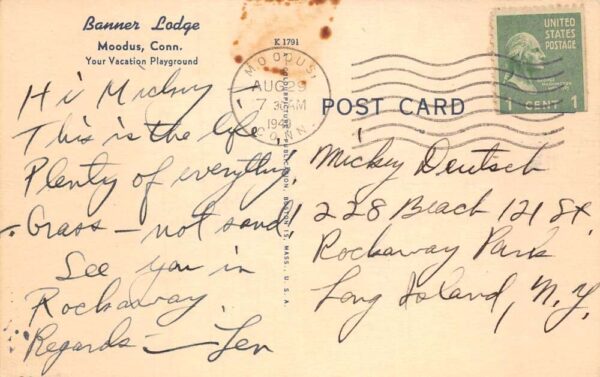 Banner Lodge
Moodus, Conn.
Your Vacation Playground
Hi Mickey –
This is the life,
Plenty of everything,
Grass – not sand!
See you in
Rockaway.
Regards – Len
K 1791
MOODUS.
AUG 29
7 30 AM
CONN.
UNITED
STATES
POSTAGE
1 CENT 1
POST CARD
Mickey Deutsch
228 Beach 121 St.
Rockaway Park
Long Island, N.Y.